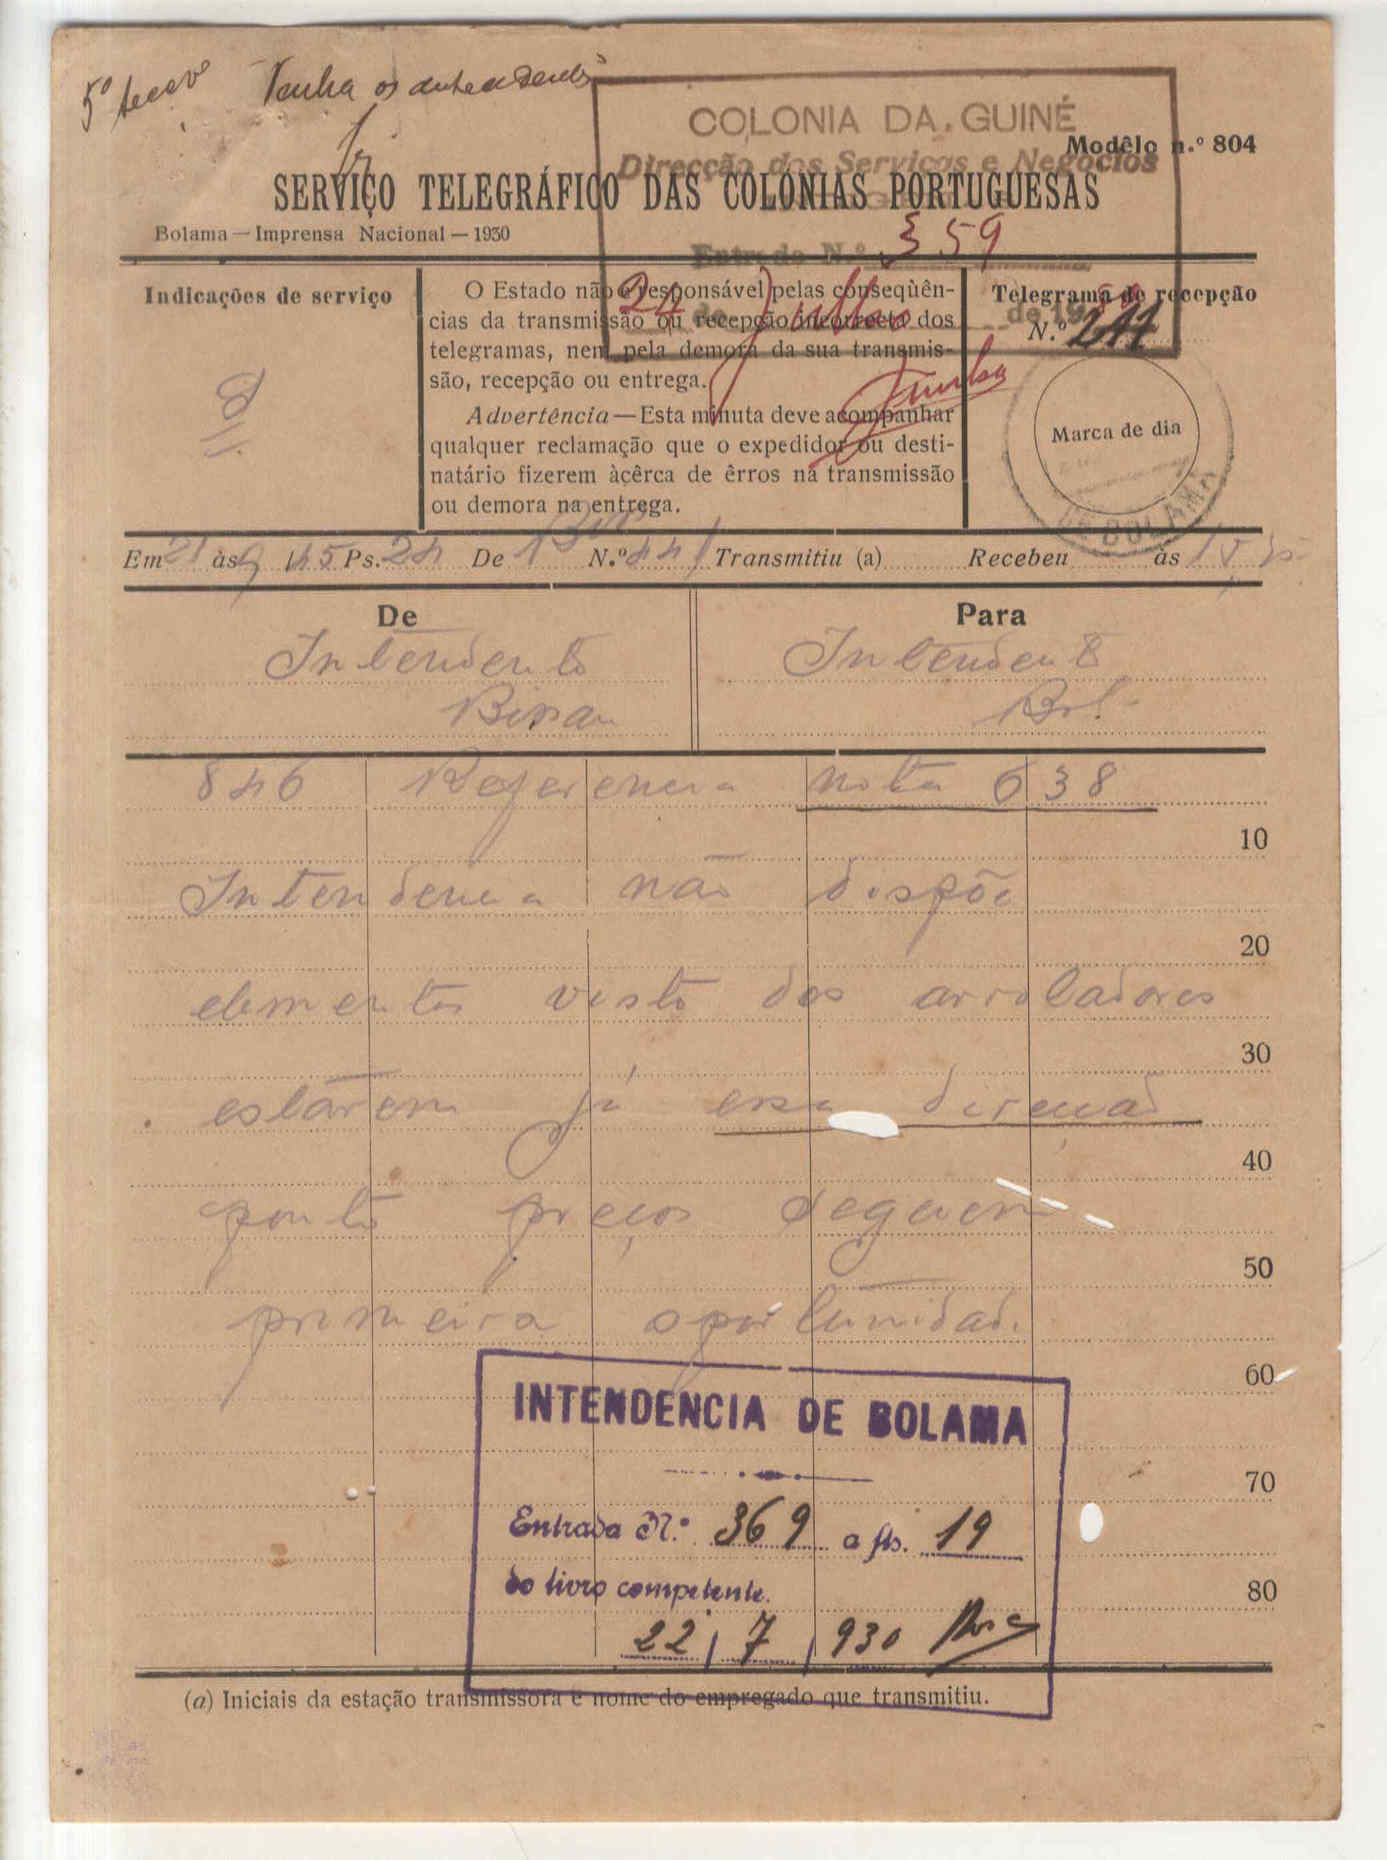 Tenha os antecedentes
COLONIA DA GUINÉ
Modêlo n.º 804
Direcção dos Serviços e Negocios
SERVIÇO TELEGRÁFICO DAS COLÓNIAS PORTUGUESAS
Bolama — Imprensa Nacional — 1930
Entrada N.º 359
24 de Julho de 1930
Indicações de serviço
O Estado não é responsável pelas conseqüên-
cias da transmissão ou recepção incorrecta dos
telegramas, nem pela demora da sua transmis-
são, recepção ou entrega.
Advertência—Esta minuta deve acompanhar
qualquer reclamação que o expedidor ou desti-
natário fizerem àcêrca de êrros na transmissão
ou demora na entrega.
Telegrama de recepção
N.º 211
Marca de dia
BOLAMA
Em 21 às 9 145 Ps. 24 De N.º 441 Transmitiu (a) Recebeu às
De
Para
Intendente
Bissau
Intendente
Bol.
846 Referencia nota 638
10
Intendencia não dispõe
20
elementos visto dos arroladores
30
estarem já essa direcção
40
ponto preços seguem
50
primeira oportunidade
60
INTENDENCIA DE BOLAMA
70
Entrada N.º 369 a fls. 19
do livro competente.
80
22/7/930
(a) Iniciais da estação transmissora e nome do empregado que transmitiu.